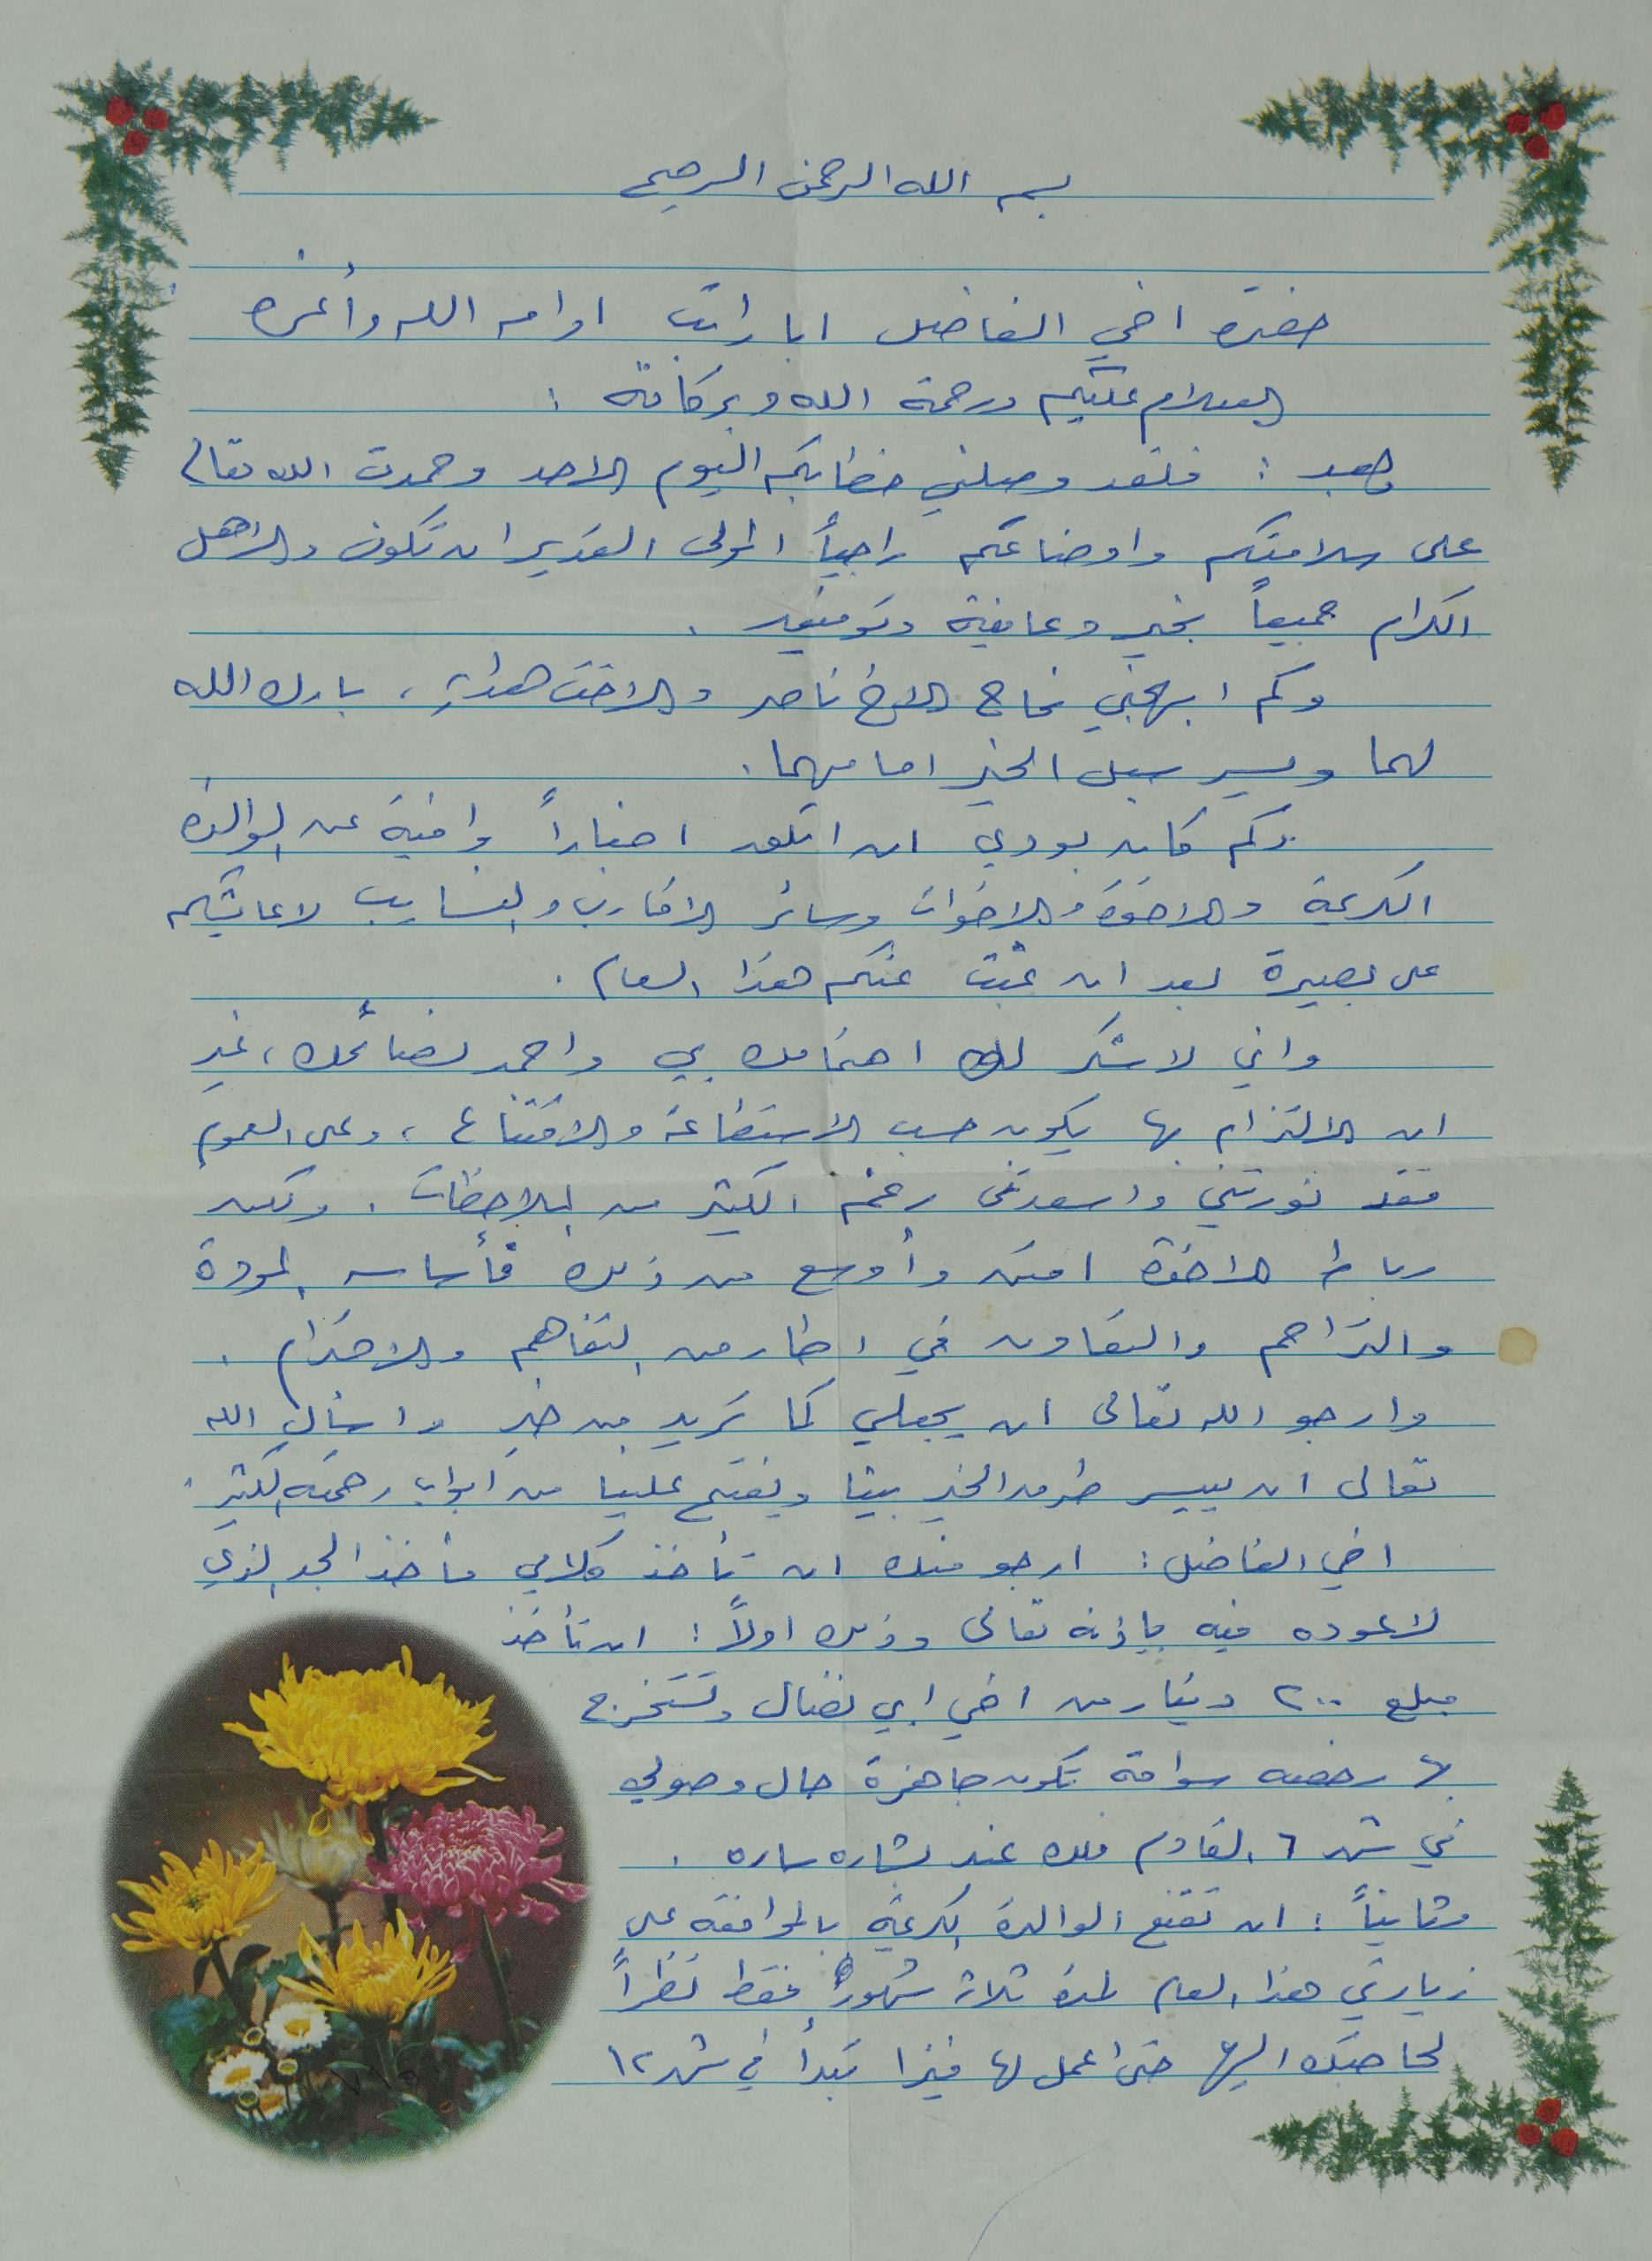 بسم الله الرحمن الرحيم
حضرة اخي الفاضل ابا راتب ادامه الله وأعزه
السلام عليكم ورحمة الله وبركاته :
وبعد : فلقد وصلني خطابكم اليوم الاحد وحمدت الله تعالى
على سلامتكم واوضاعكم راجياً المولى القدير ان تكون والاهل
الكرام جميعاً بخير وعافية وتوفيق .
وكم ابهجني نجاح الاخ ناصر والاخت هداية ، بارك الله
لهما ويسر سبل الخير امامهما .
وكم كان بودي ان اتلقى اخباراً وافية عن الوالدة
الكريمة والاخوة والاخوات وسائر الاقارب والنسايب لاعايشكم
على بصيرة بعد ان غبت عنكم هذا العام .
واني لاشكر لك اهتمامك بي واحمد نصائحك ، غير
ان الالتزام بها يكون حسب الاستطاعة والاقتناع ، وعلى العموم
فقد نورتني واسعدتني رغم الكثير من الملاحظات . ولكن
رباط الاخوة امتن وأوسع من ذلك فأساسه المودة
والتراحم والتعاون في اطار من التفاهم والاحترام .
وارجو الله تعالى ان يجعلني كما تريد من خير واسأل الله
تعالى ان ييسر طرق الخير بيننا ويفتح علينا من ابواب رحمته الكثير .
اخي الفاضل : ارجو منك ان تأخذ كلامي مأخذ الجد الذي
لا عوده فيه بإذنه تعالى وذلك اولاً : ان تأخذ
مبلغ ٢٠٠ دينار من اخي ابي نضال وتستخرج
بها رخصه سواقة تكون جاهزة حال وصولي
في شهر ٦ القادم فلك عندي بشاره ساره .
وثانياً : ان تقنع الوالدة الكريمة بالموافقة على
زيارتي هذا العام لمدة ثلاث شهور فقط نظراً
لحاجتك اليها حتى اعمل لها فيزا تبدأ في شهر ١٢